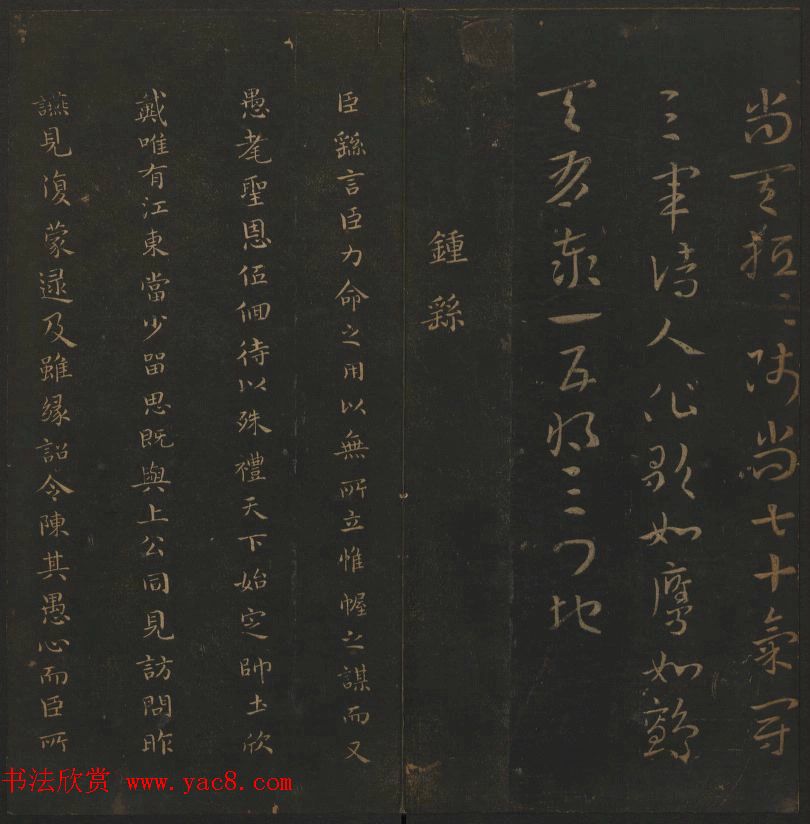 尚其桓〻師尚七十氣冠
三軍詩人作歌如鷹如鸇
天有泰一五將三門地
鍾繇
臣繇言臣力命之用以無所立惟幄之謀而又
愚耄聖恩低佪待以殊禮天下始定帥土欣
戴唯有江東當少留思既與上公同見訪問昨
讌見復蒙逮及雖緣詔令陳其愚心而臣所
书法欣赏 www.yac8.com